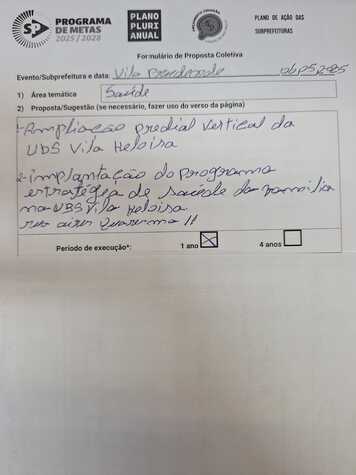 PROGRAMA
DE METAS
2025 / 2028
PLANO
PLURI
ANUAL
PLANO DE AÇÃO DAS
SUBPREFEITURAS
Formulário de Proposta Coletiva
Evento/Subprefeitura e data: Vila
1) Área temática Saúde
2) Proposta/Sugestão (se necessário, fazer uso do verso da página)
1-Ampliação predial vertical da
UBS Vila Heloisa
2-implantação do programa
estratégia de saúde da familia
na UBS Vila Heloisa
Período de execução*: 1 ano 4 anos